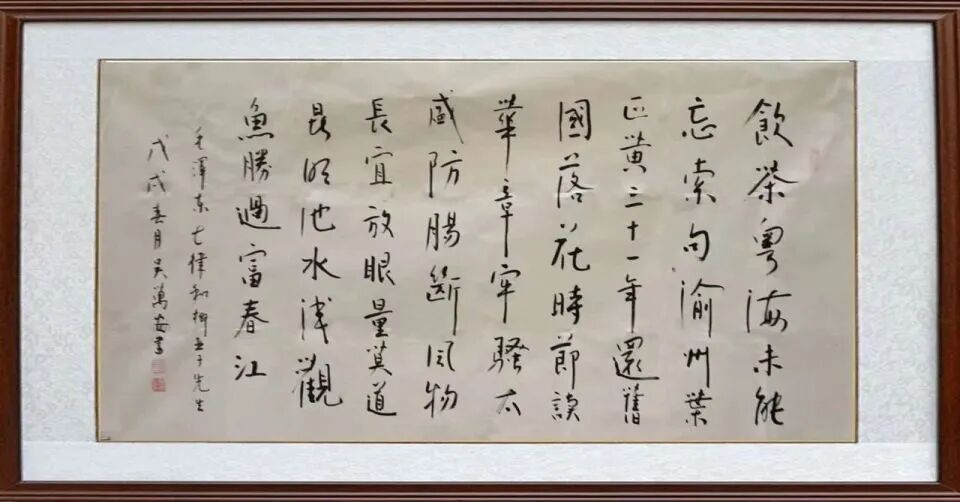 飲茶粤海未能
忘索句渝州葉
正黄三十一年還舊
國落花時節讀
華章牢騷太
盛防腸斷风物
長宜放眼量莫道
昆明池水浅觀
魚勝過富春江
毛澤东七律和柳亚子先生
戊戌春月吴萬安書